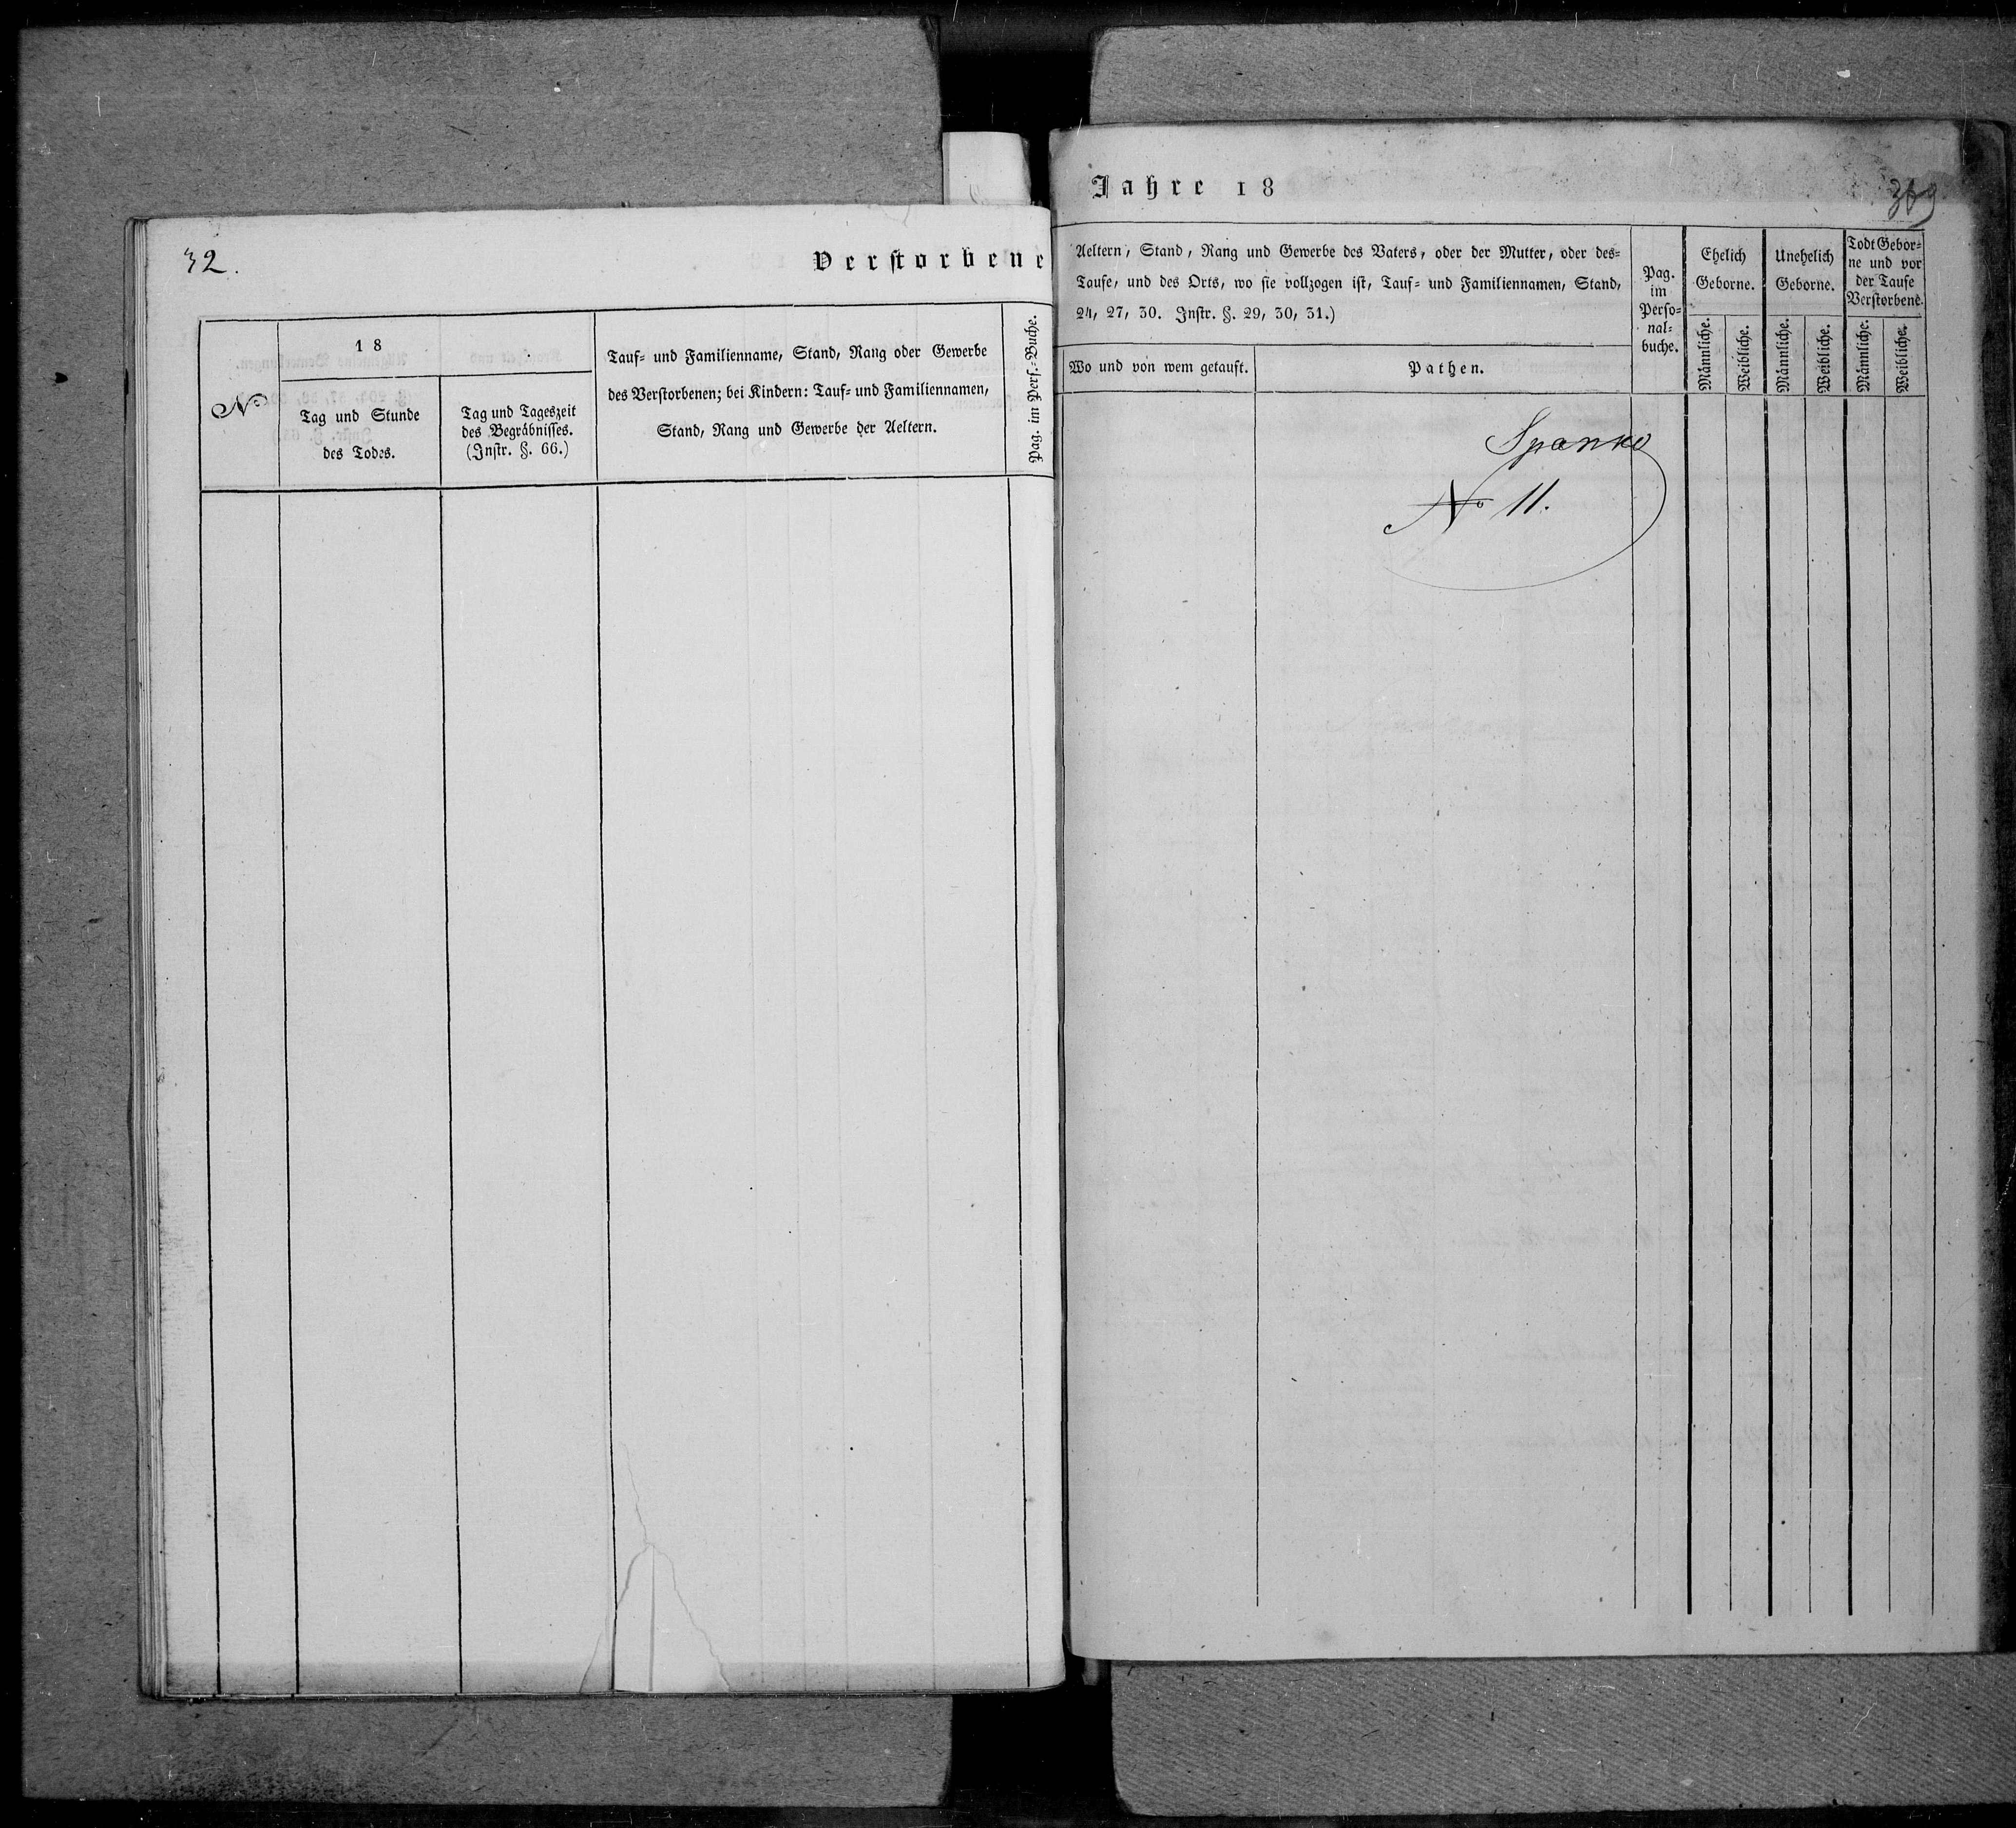 32.
Verstorbene
№
18 .
Tag und Stunde
des Todes.
Tag und Tageszeit
des Begräbnisses.
(Instr. §. 66.)
Tauf- und Familienname, Stand, Rang oder Gewerbe
des Verstorbenen; bei Kindern: Tauf- und Familiennamen,
Stand, Rang und Gewerbe der Aeltern.
Pag. im Pers.-Buche.
Jahre 18
369.
Aeltern, Stand, Rang und Gewerbe des Vaters, oder der Mutter, oder des-
Taufe, und des Orts, wo sie vollzogen ist, Tauf- und Familiennamen, Stand,
24, 27, 30. Instr. §. 29, 30, 31.)
Wo und von wem getauft.
Pathen.
Pag.
im
Perso-
nal-
buche.
Ehelich
Geborne.
Männliche.
Weibliche.
Unehelich
Geborne.
Männliche.
Weibliche.
Todt Gebor-
ne und vor
der Taufe
Verstorbene.
Männliche.
Weibliche.
Spanko
№ 11.